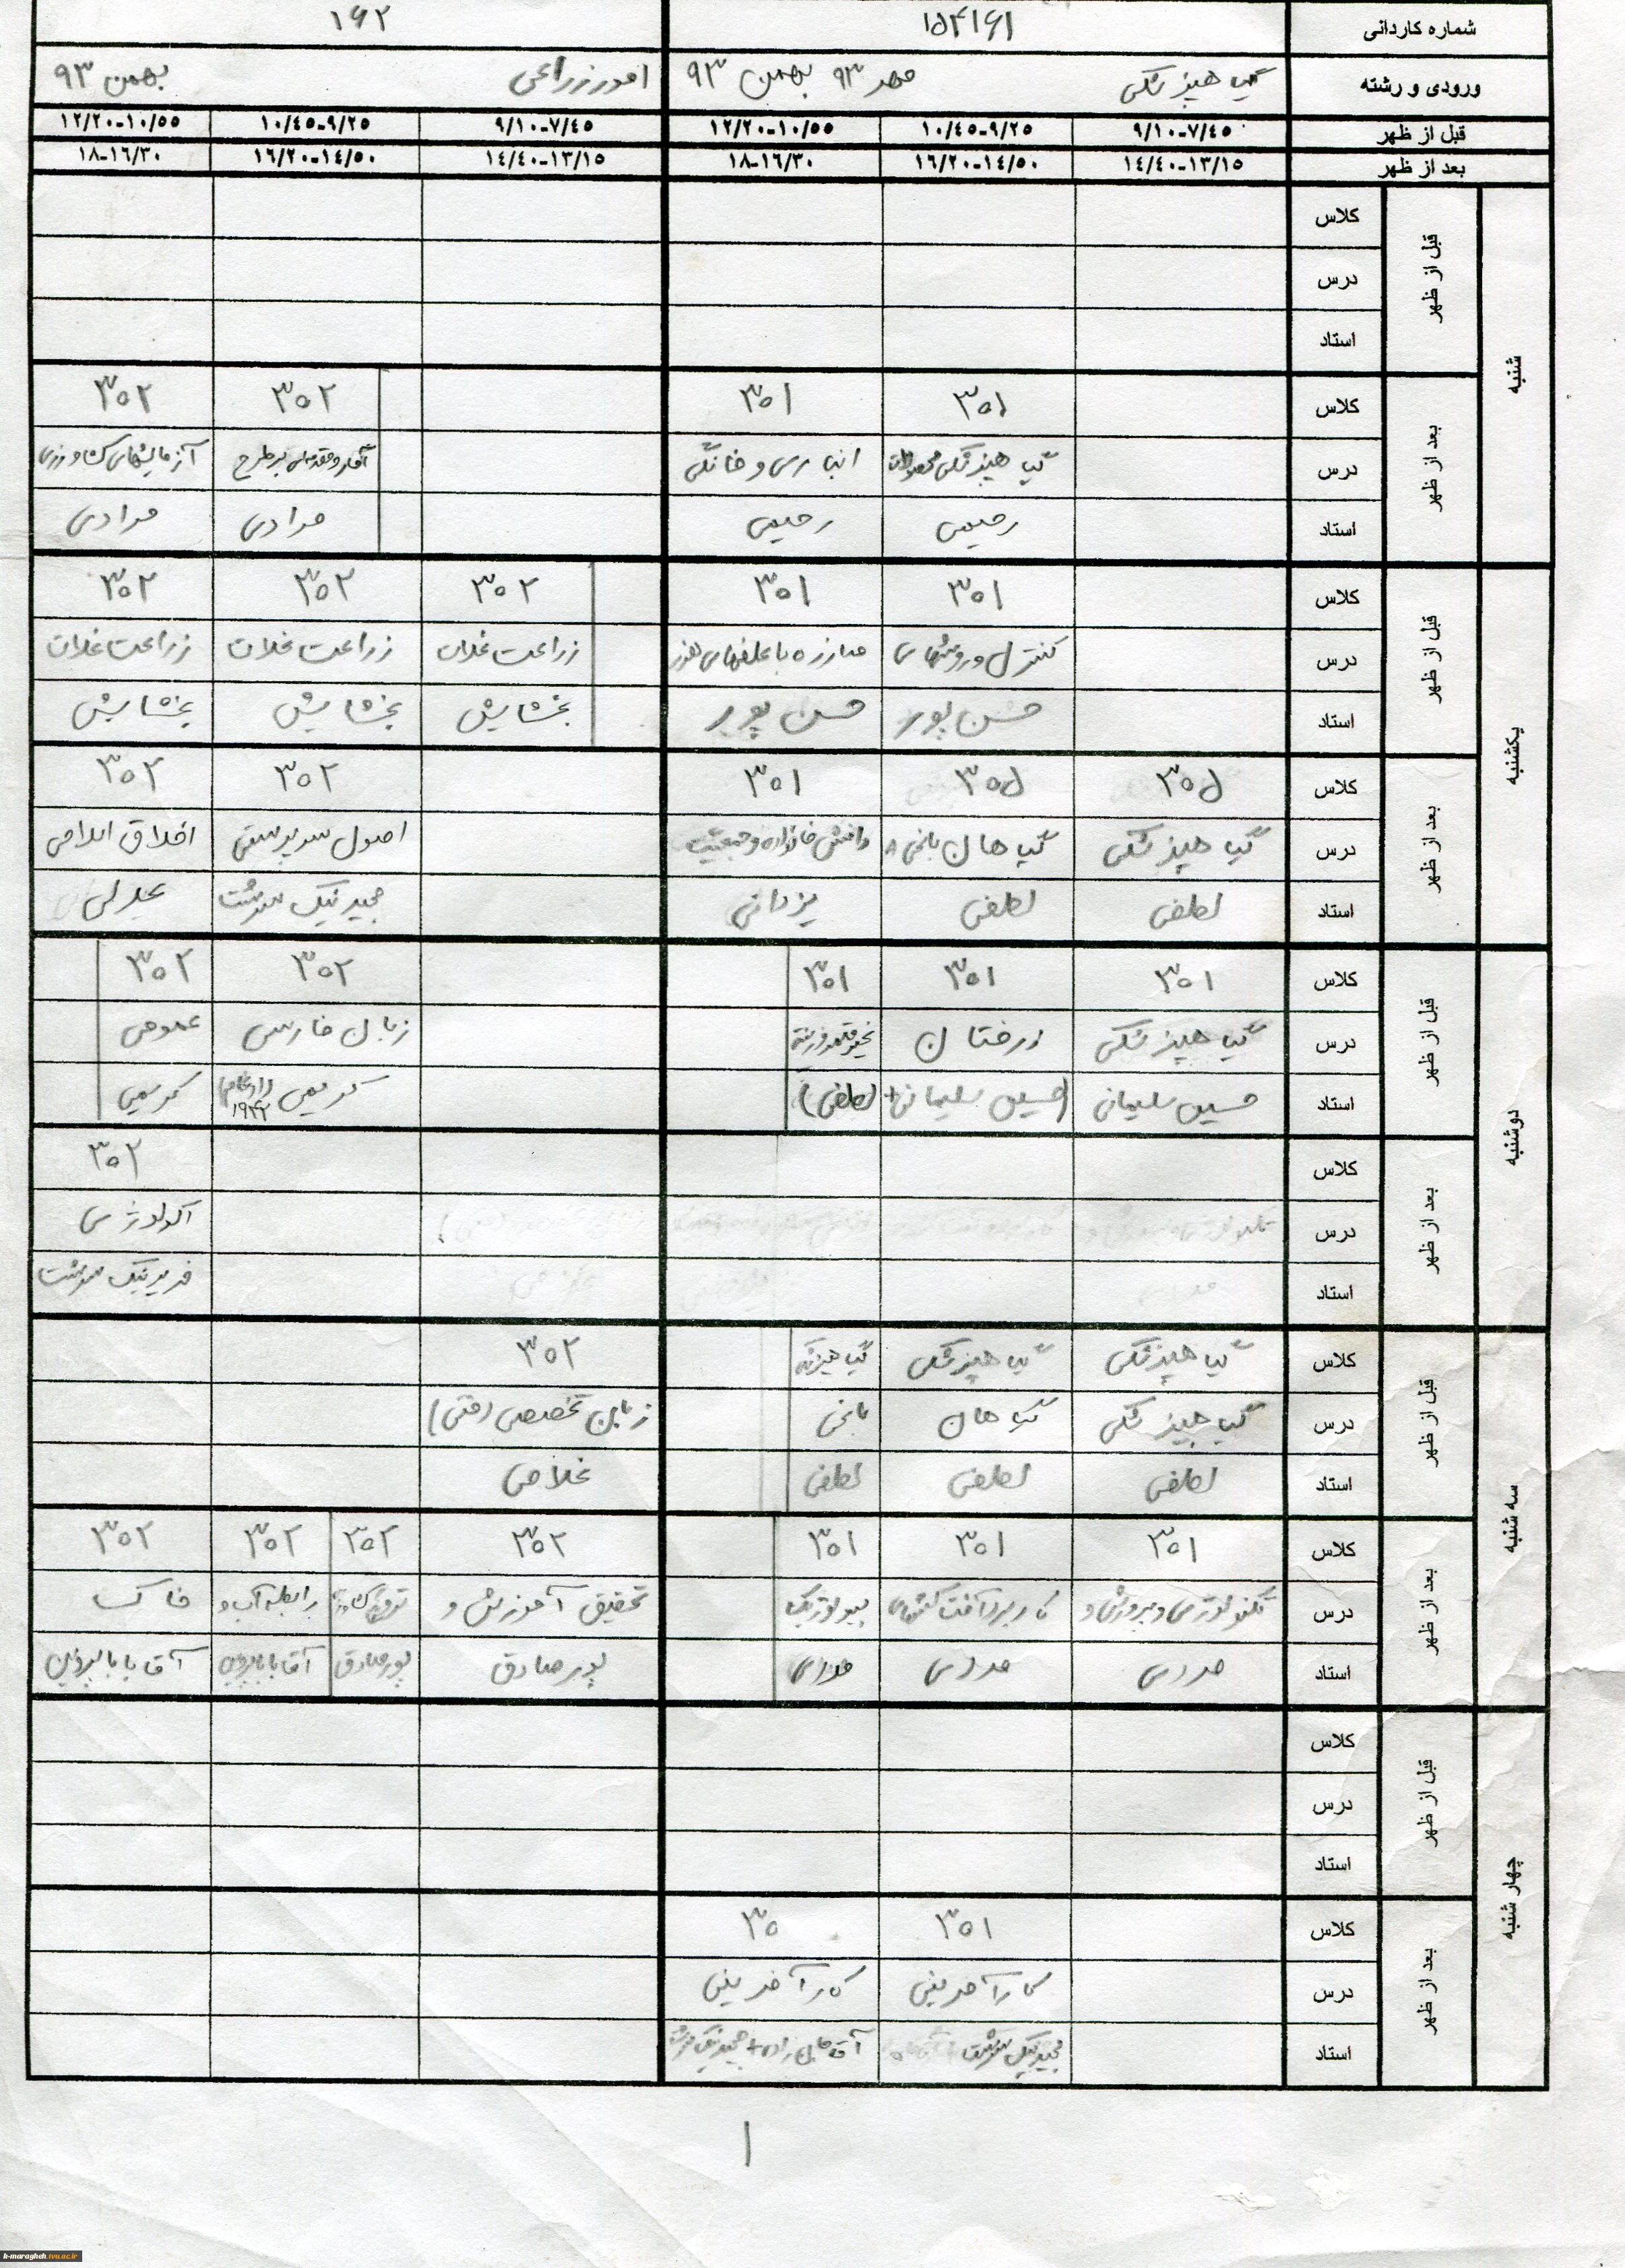 شماره کاردانی ۱۵۴۱۶۱ ۱۶۲
ورودی و رشته گیاهپزشکی مهر ۹۳ بهمن ۹۳ امور زراعی بهمن ۹۳
قبل از ظهر ۷/۴۵-۹/۱۰ ۹/۲۵-۱۰/۴۵ ۱۰/۵۵-۱۲/۲۰ ۷/۴۵-۹/۱۰ ۹/۲۵-۱۰/۴۵ ۱۰/۵۵-۱۲/۲۰
بعد از ظهر ۱۳/۱۵-۱۴/۴۰ ۱۴/۵۰-۱۶/۲۰ ۱۶/۳۰-۱۸ ۱۳/۱۵-۱۴/۴۰ ۱۴/۵۰-۱۶/۲۰ ۱۶/۳۰-۱۸
شنبه
قبل از ظهر
کلاس
درس
استاد
بعد از ظهر
کلاس ۳۰۱ ۳۰۱ ۳۰۲ ۳۰۲
درس گیاهپزشکی محصولات انباری و خانگی طرح آزمایشهای کشاورزی
استاد رحیمی رحیمی مرادی مرادی
یکشنبه
قبل از ظهر
کلاس ۳۰۱ ۳۰۱ ۳۰۲ ۳۰۲ ۳۰۲
درس کنترل و روشهای مبارزه با علفهای هرز زراعت غلات زراعت غلات زراعت غلات
استاد حسن پور حسن پور بخشایش بخشایش بخشایش
بعد از ظهر
کلاس ۳۰۵ ۳۰۵ ۳۰۱ ۳۰۲ ۳۰۲
درس گیاهپزشکی گیاهان باغی دانش خانواده و جمعیت اصول سرپرستی اخلاق اسلامی
استاد لطفی لطفی یزدانی مجید نیک سرشت عدلی
دوشنبه
قبل از ظهر
کلاس ۳۰۱ ۳۰۱ ۳۰۱ ۳۰۲ ۳۰۲
درس گیاهپزشکی درختان زبان فارسی عمومی
استاد حسین سلیمانی (حسین سلیمانی+ لطفی) کریمی کریمی
بعد از ظهر
کلاس ۳۰۲
درس اکولوژی
استاد فرید نیک سرشت
سه شنبه
قبل از ظهر
کلاس گیاهپزشکی گیاهپزشکی ۳۰۲
درس گیاهپزشکی گیاهان باغی زبان تخصصی (فنی)
استاد لطفی لطفی لطفی غلامی
بعد از ظهر
کلاس ۳۰۱ ۳۰۱ ۳۰۱ ۳۰۲ ۳۰۲ ۳۰۲ ۳۰۲
درس تکنولوژی و پرورش و کاربرد آفت کشهای بیولوژیک تحقیق آموزش و رابطه آب و خاک
استاد مددی مددی مددی پورصادق پورصادق آقابابا پروین آقابابا پروین
چهار شنبه
قبل از ظهر
کلاس
درس
استاد
بعد از ظهر
کلاس ۳۰۱ ۳۰
درس کارآفرینی کارآفرینی
استاد مجید نیک سرشت مجید نیک سرشت
۱
h-maragheh.tvu.ac.ir